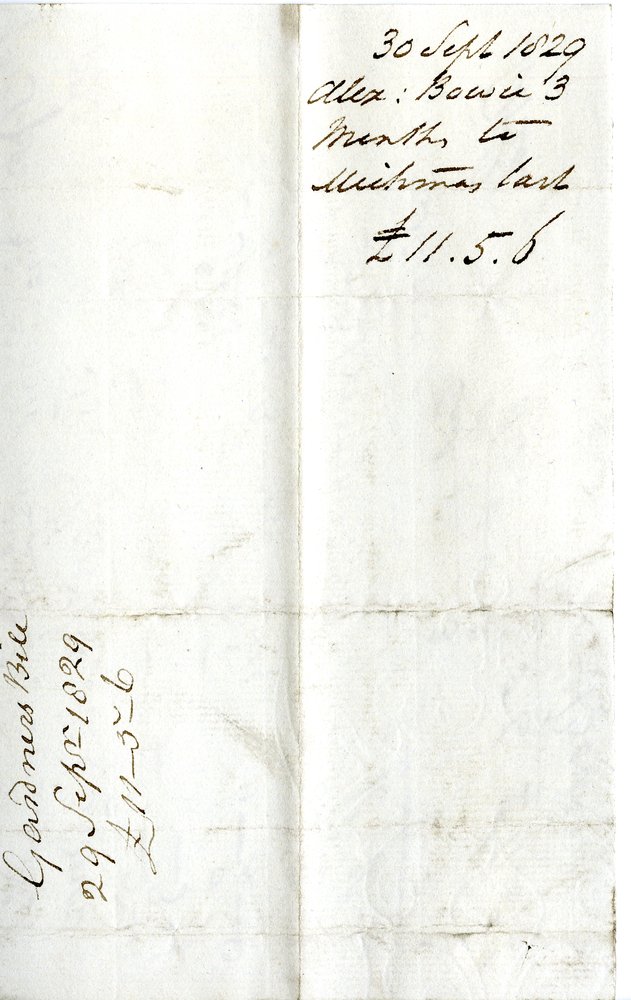 30 Sept 1829
Alex: Bowie 3
Months to
Michmas last
£11.5.6
Gardners Bill
29 Sepr 1829
£11-5-6